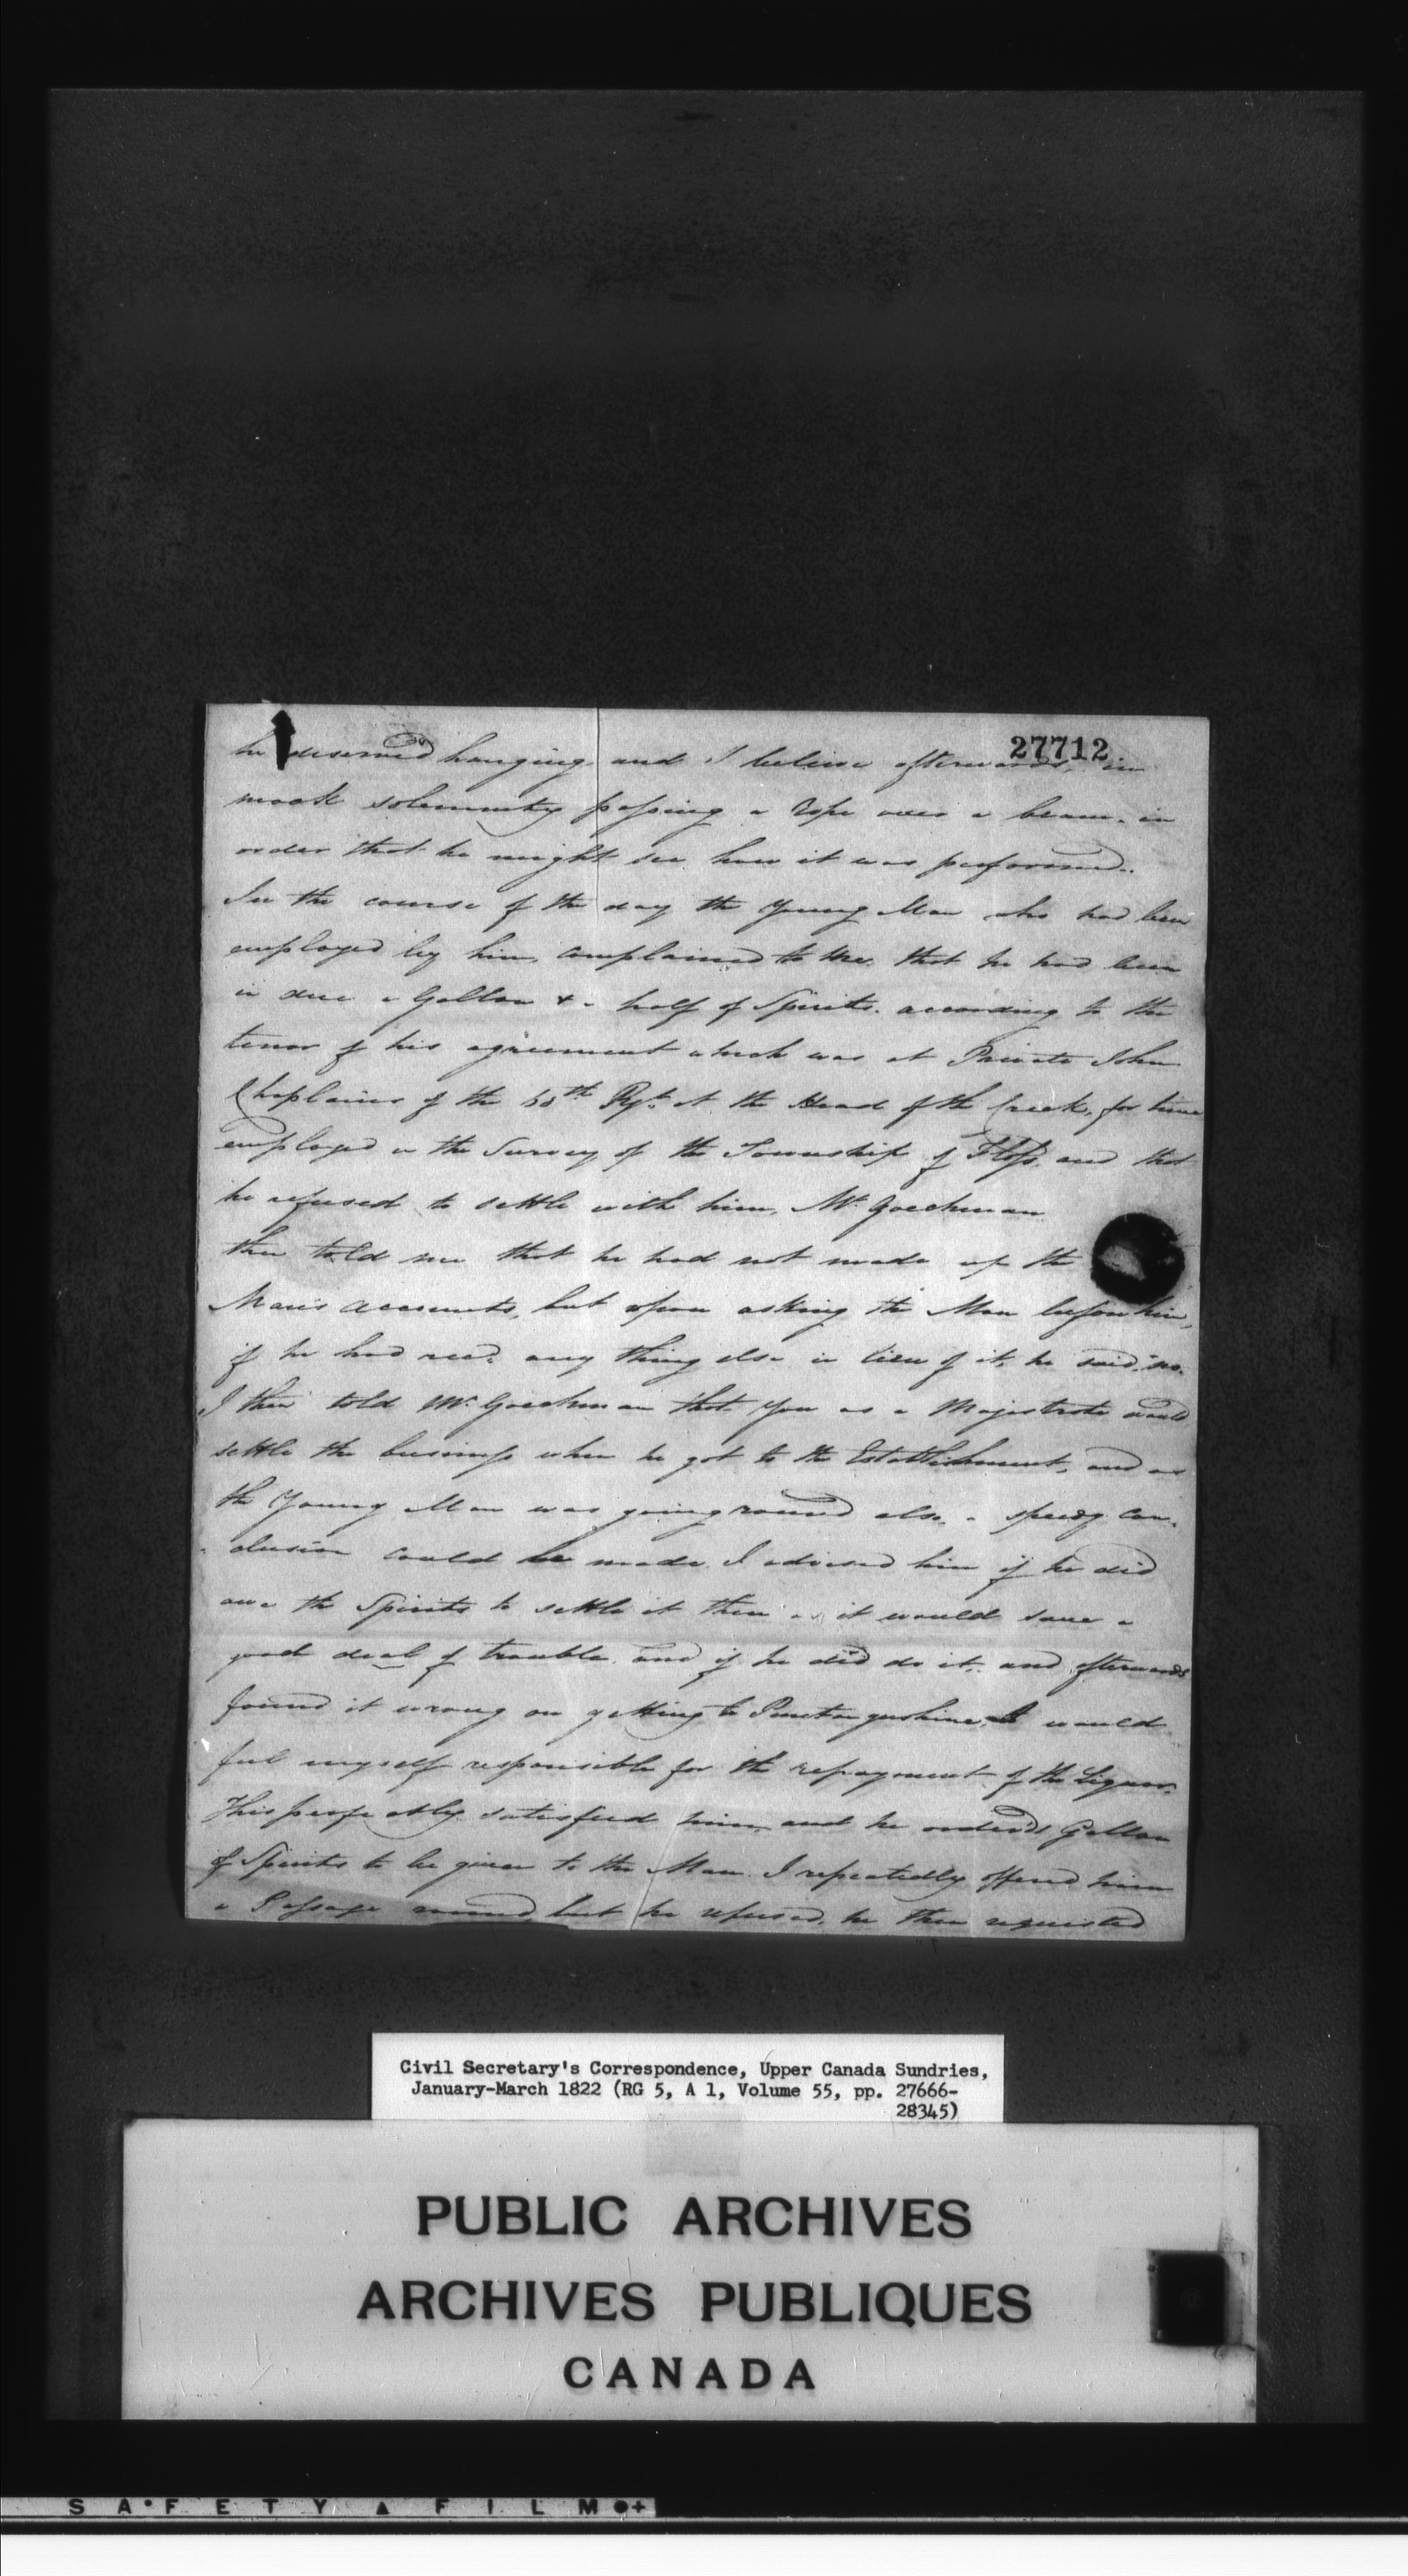 27712
he deserved hanging and I believe afterwards, in
mock solemnity passing a Rope over a beam. in
order that he might see how it was performed.
In the course of the day the Young Man who had been
employed by him, complained to me. that he had been
in due a Gallon & a half of Spirits. according to the
tenor of his agreement which was at Private John
of the 68th Regt. at the Head of the Creek, for time
employed in the Survey of the Township of Floss. and that
he refused to settle with him, Mr. Goeshman
then told me that he had not made up the
Man's accounts, but upon asking the Man before him,
if he had recd. any thing else in lieu of it, he said, no.
I then told Mr. Goeshman that you as a Majestrate would
settle the business when he got to the Establishment, and as
the Young Man was going round also, a speedy con-
-clusion could be made. I advised him if he did
owe the Spirits to settle it then as it would save a
good deal of trouble. and if he did do it, and afterwards
found it wrong on getting to Penetangushine, I would
feel myself responsible for the repayment of the Liquor.
This perfectly satisfied him, and he ordered Gallon
of Spirits to be given to the Man. I repeatedly offered him
a Passage round, but he refused. he then requested
Civil Secretary's Correspondence, Upper Canada Sundries,
January-March 1822 (RG 5, A 1, Volume 55, pp. 27666-
28345)
PUBLIC ARCHIVES
ARCHIVES PUBLIQUES
CANADA
SAFETY FILM